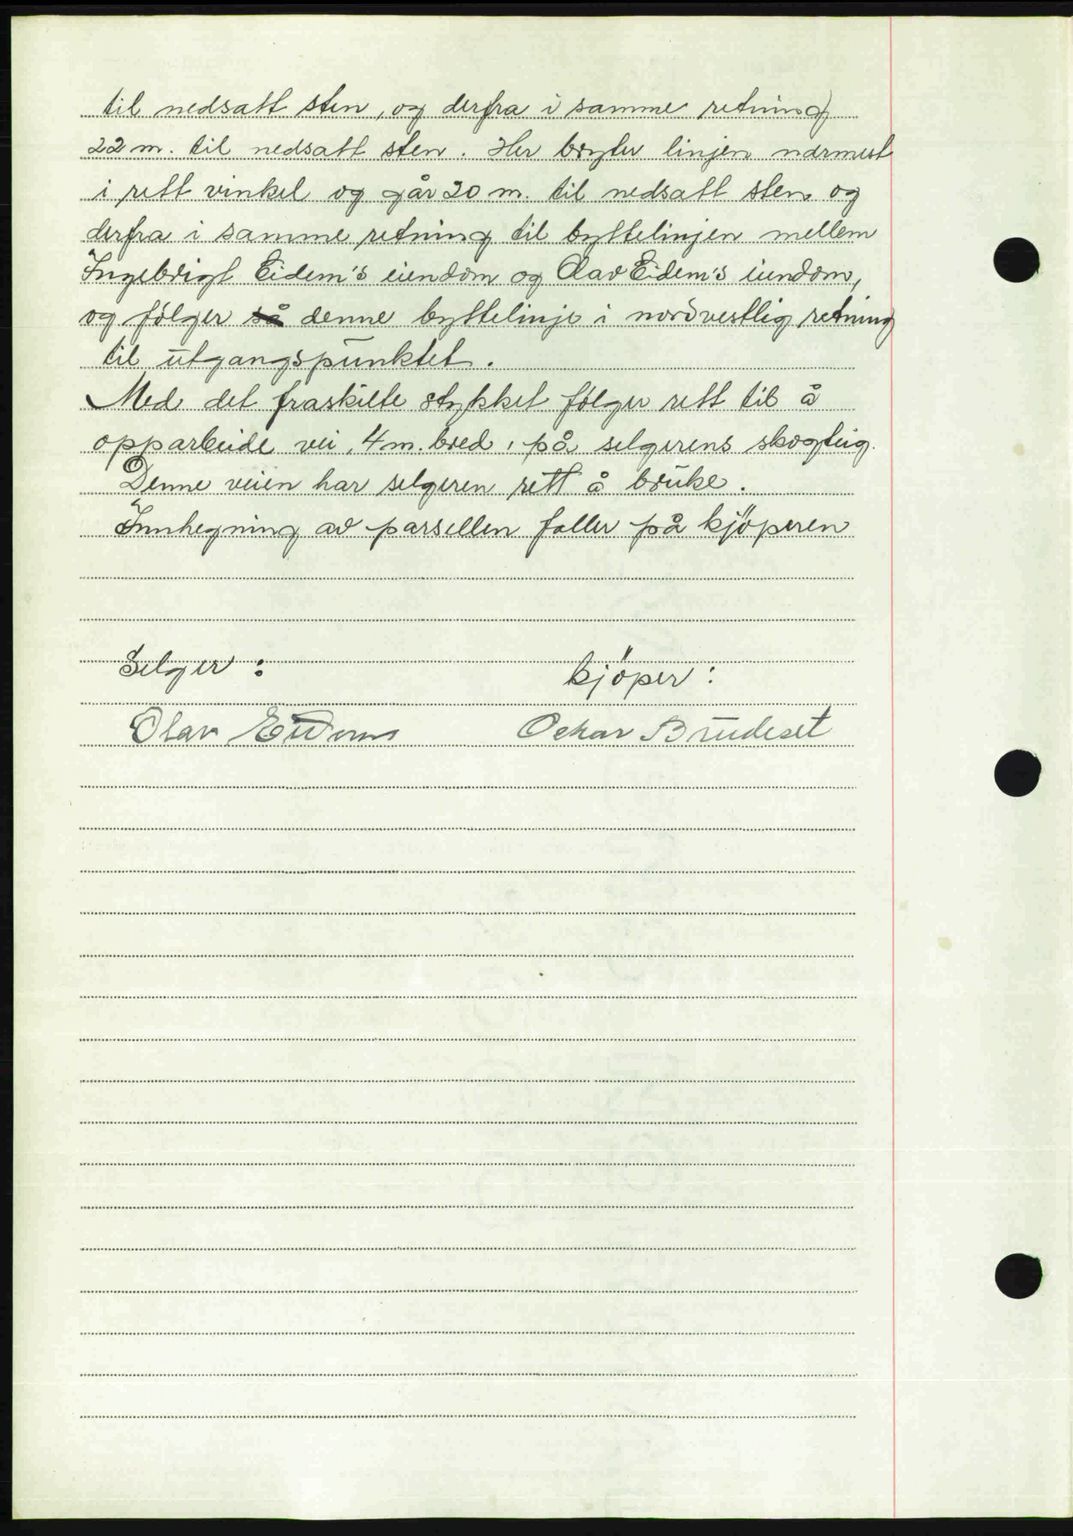 til nedsatt sten, og derfra i samme retning
22 m. til nedsatt sten. Her bryter linjen nærmest
i rett vinkel og går 20 m. til nedsatt sten og
derfra i samme retning til byttelinjen mellem
Ingebrigt Eidem's eiendom og Olav Eidem's eiendom,
og følger så denne byttelinje i nordvestlig retning
til utgangspunktet.
Med det fraskilte stykket følger rett til å
opparbeide vei, 4 m. bred, på selgerens skogteig.
Denne veien har selgeren rett å bruke.
Innhegning av parsellen faller på kjöperen
Selger: kjöper:
Olav Eidem Oskar Brudeset